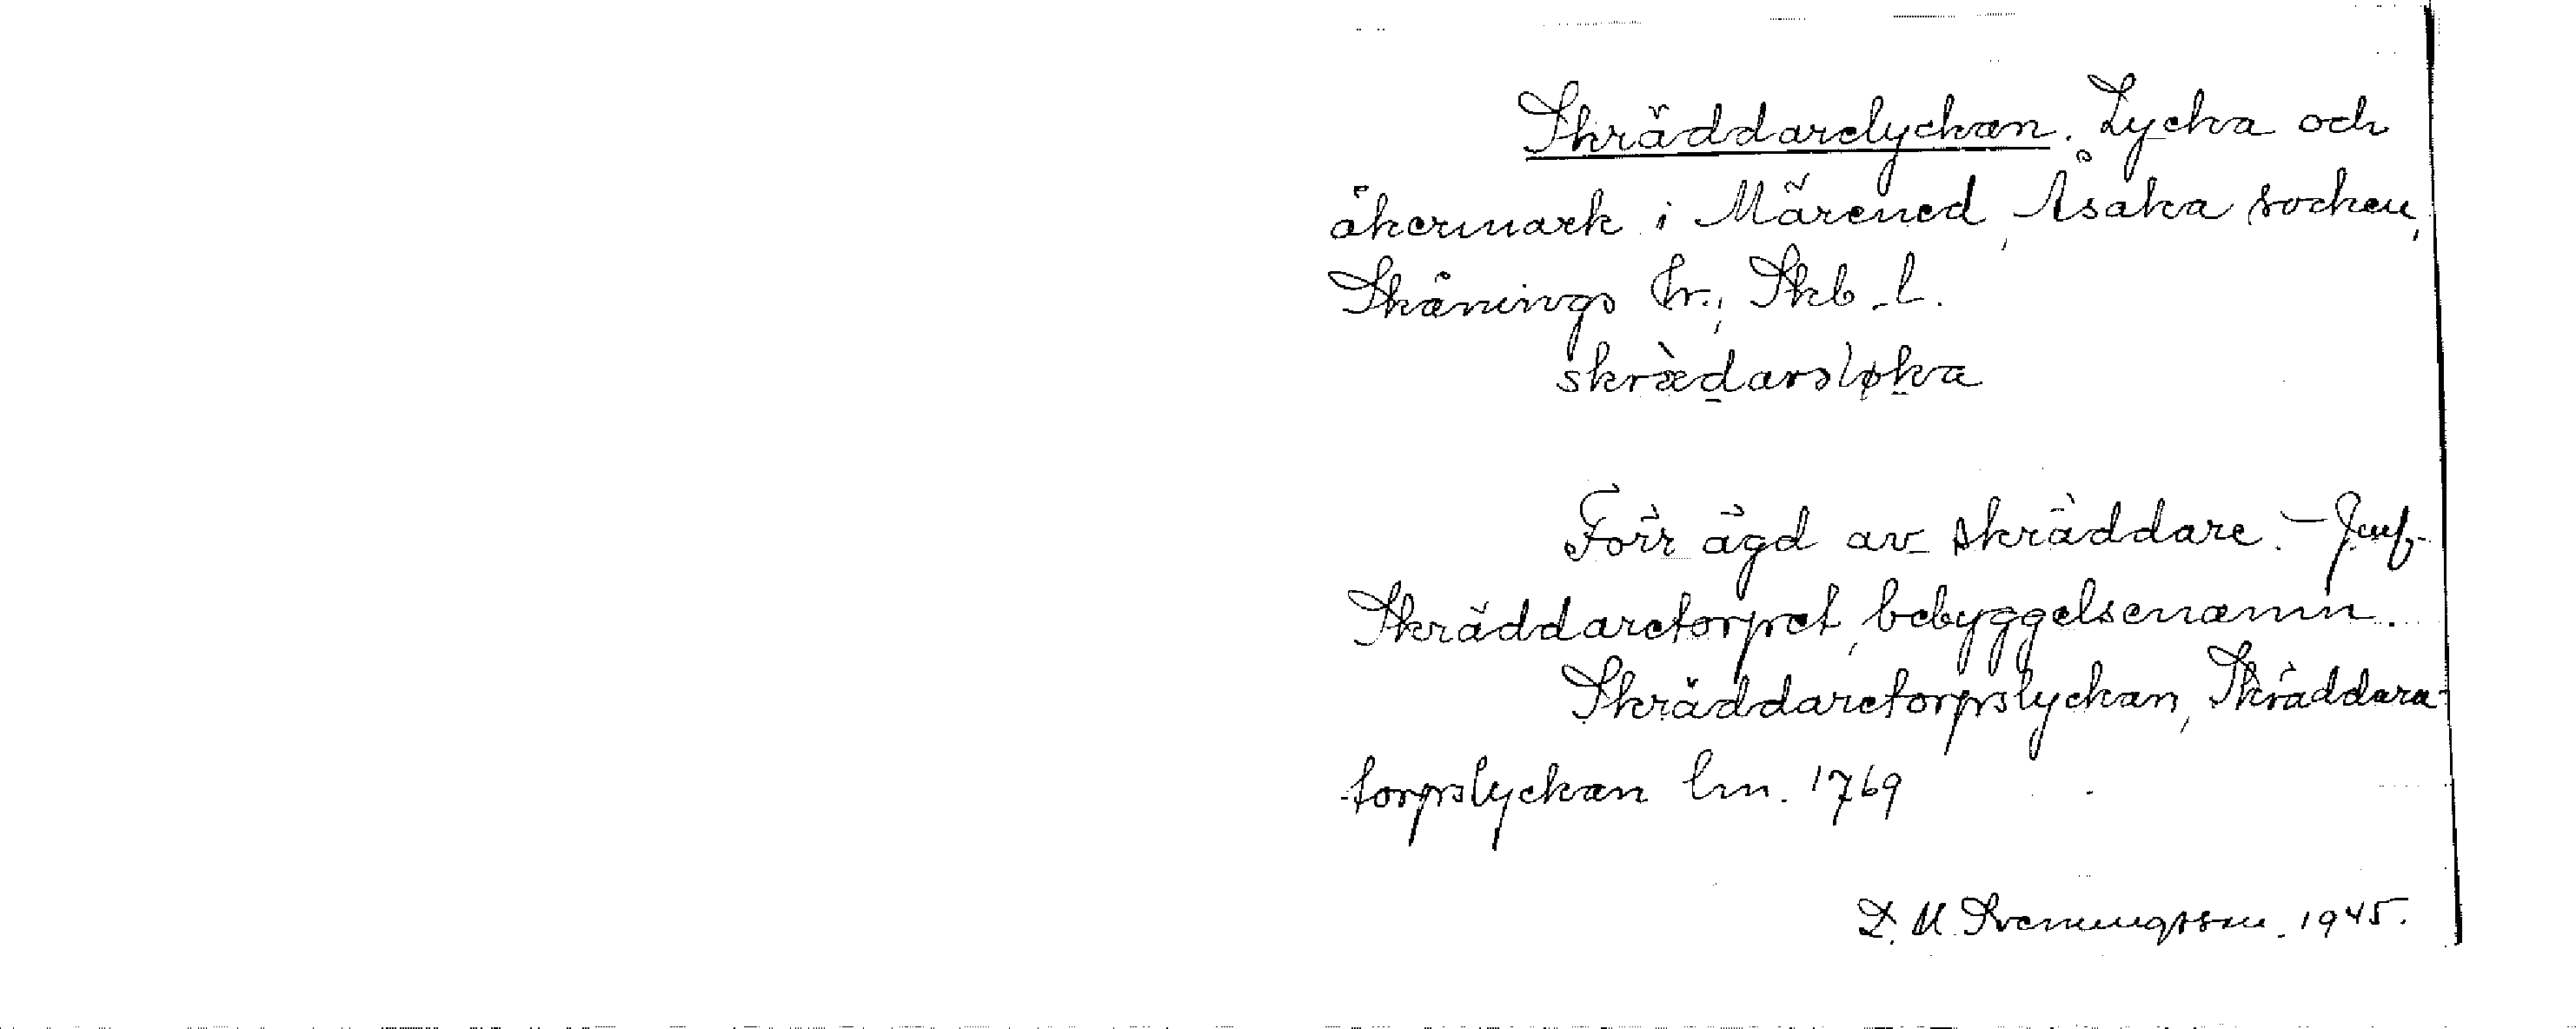 Skräddarelyckan. Lycka och
åkermark i Märened, Åsaka socken,
Skånings hr., Skb. l.
skrædarsløka
Förr ägd av skräddare. - Jmf.
Skräddaretorpet, bebyggelsenamn.
Skräddaretorpslyckan, Skräddara-
torpslyckan lm. 1769
D. M. Sveningsson. 1945.